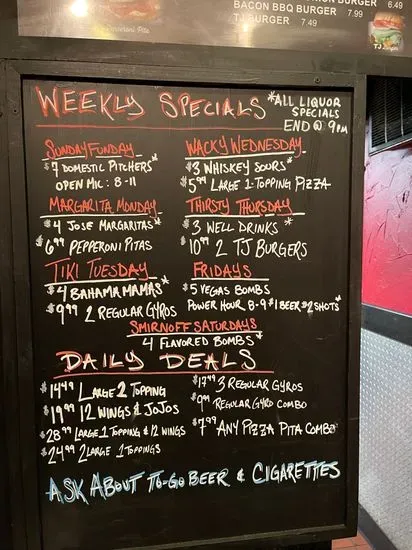 BURGER 6.49
BACON BBQ BURGER 7.99
TJ BURGER 7.49
WEEKLY SPECIALS *ALL LIQUOR SPECIALS END @ 9PM
SUNDAY FUNDAY
$7 DOMESTIC PITCHERS*
OPEN MIC: 8-11
MARGARITA MONDAY
$4 JOSE MARGARITAS*
$6.99 PEPPERONI PITAS
TIKI TUESDAY
$4 BAHAMA MAMAS*
$9.99 2 REGULAR GYROS
WACKY WEDNESDAY
$3 WHISKEY SOURS*
$5.99 LARGE 1-TOPPING PIZZA
THIRSTY THURSDAY
$3 WELL DRINKS*
$10.99 2 TJ BURGERS
FRIDAYS
$5 VEGAS BOMBS
POWER HOUR 8-9 $1 BEER $2 SHOTS*
SMIRNOFF SATURDAYS
4 FLAVORED BOMBS*
DAILY DEALS
$14.49 LARGE 2 TOPPING
$19.99 12 WINGS & JOJOS
$28.99 LARGE 1 TOPPING & 12 WINGS
$24.99 2 LARGE 1 TOPPINGS
$17.49 3 REGULAR GYROS
$9.99 REGULAR GYRO COMBO
$7.99 ANY PIZZA PITA COMBO
ASK ABOUT TO-GO BEER & CIGARETTES